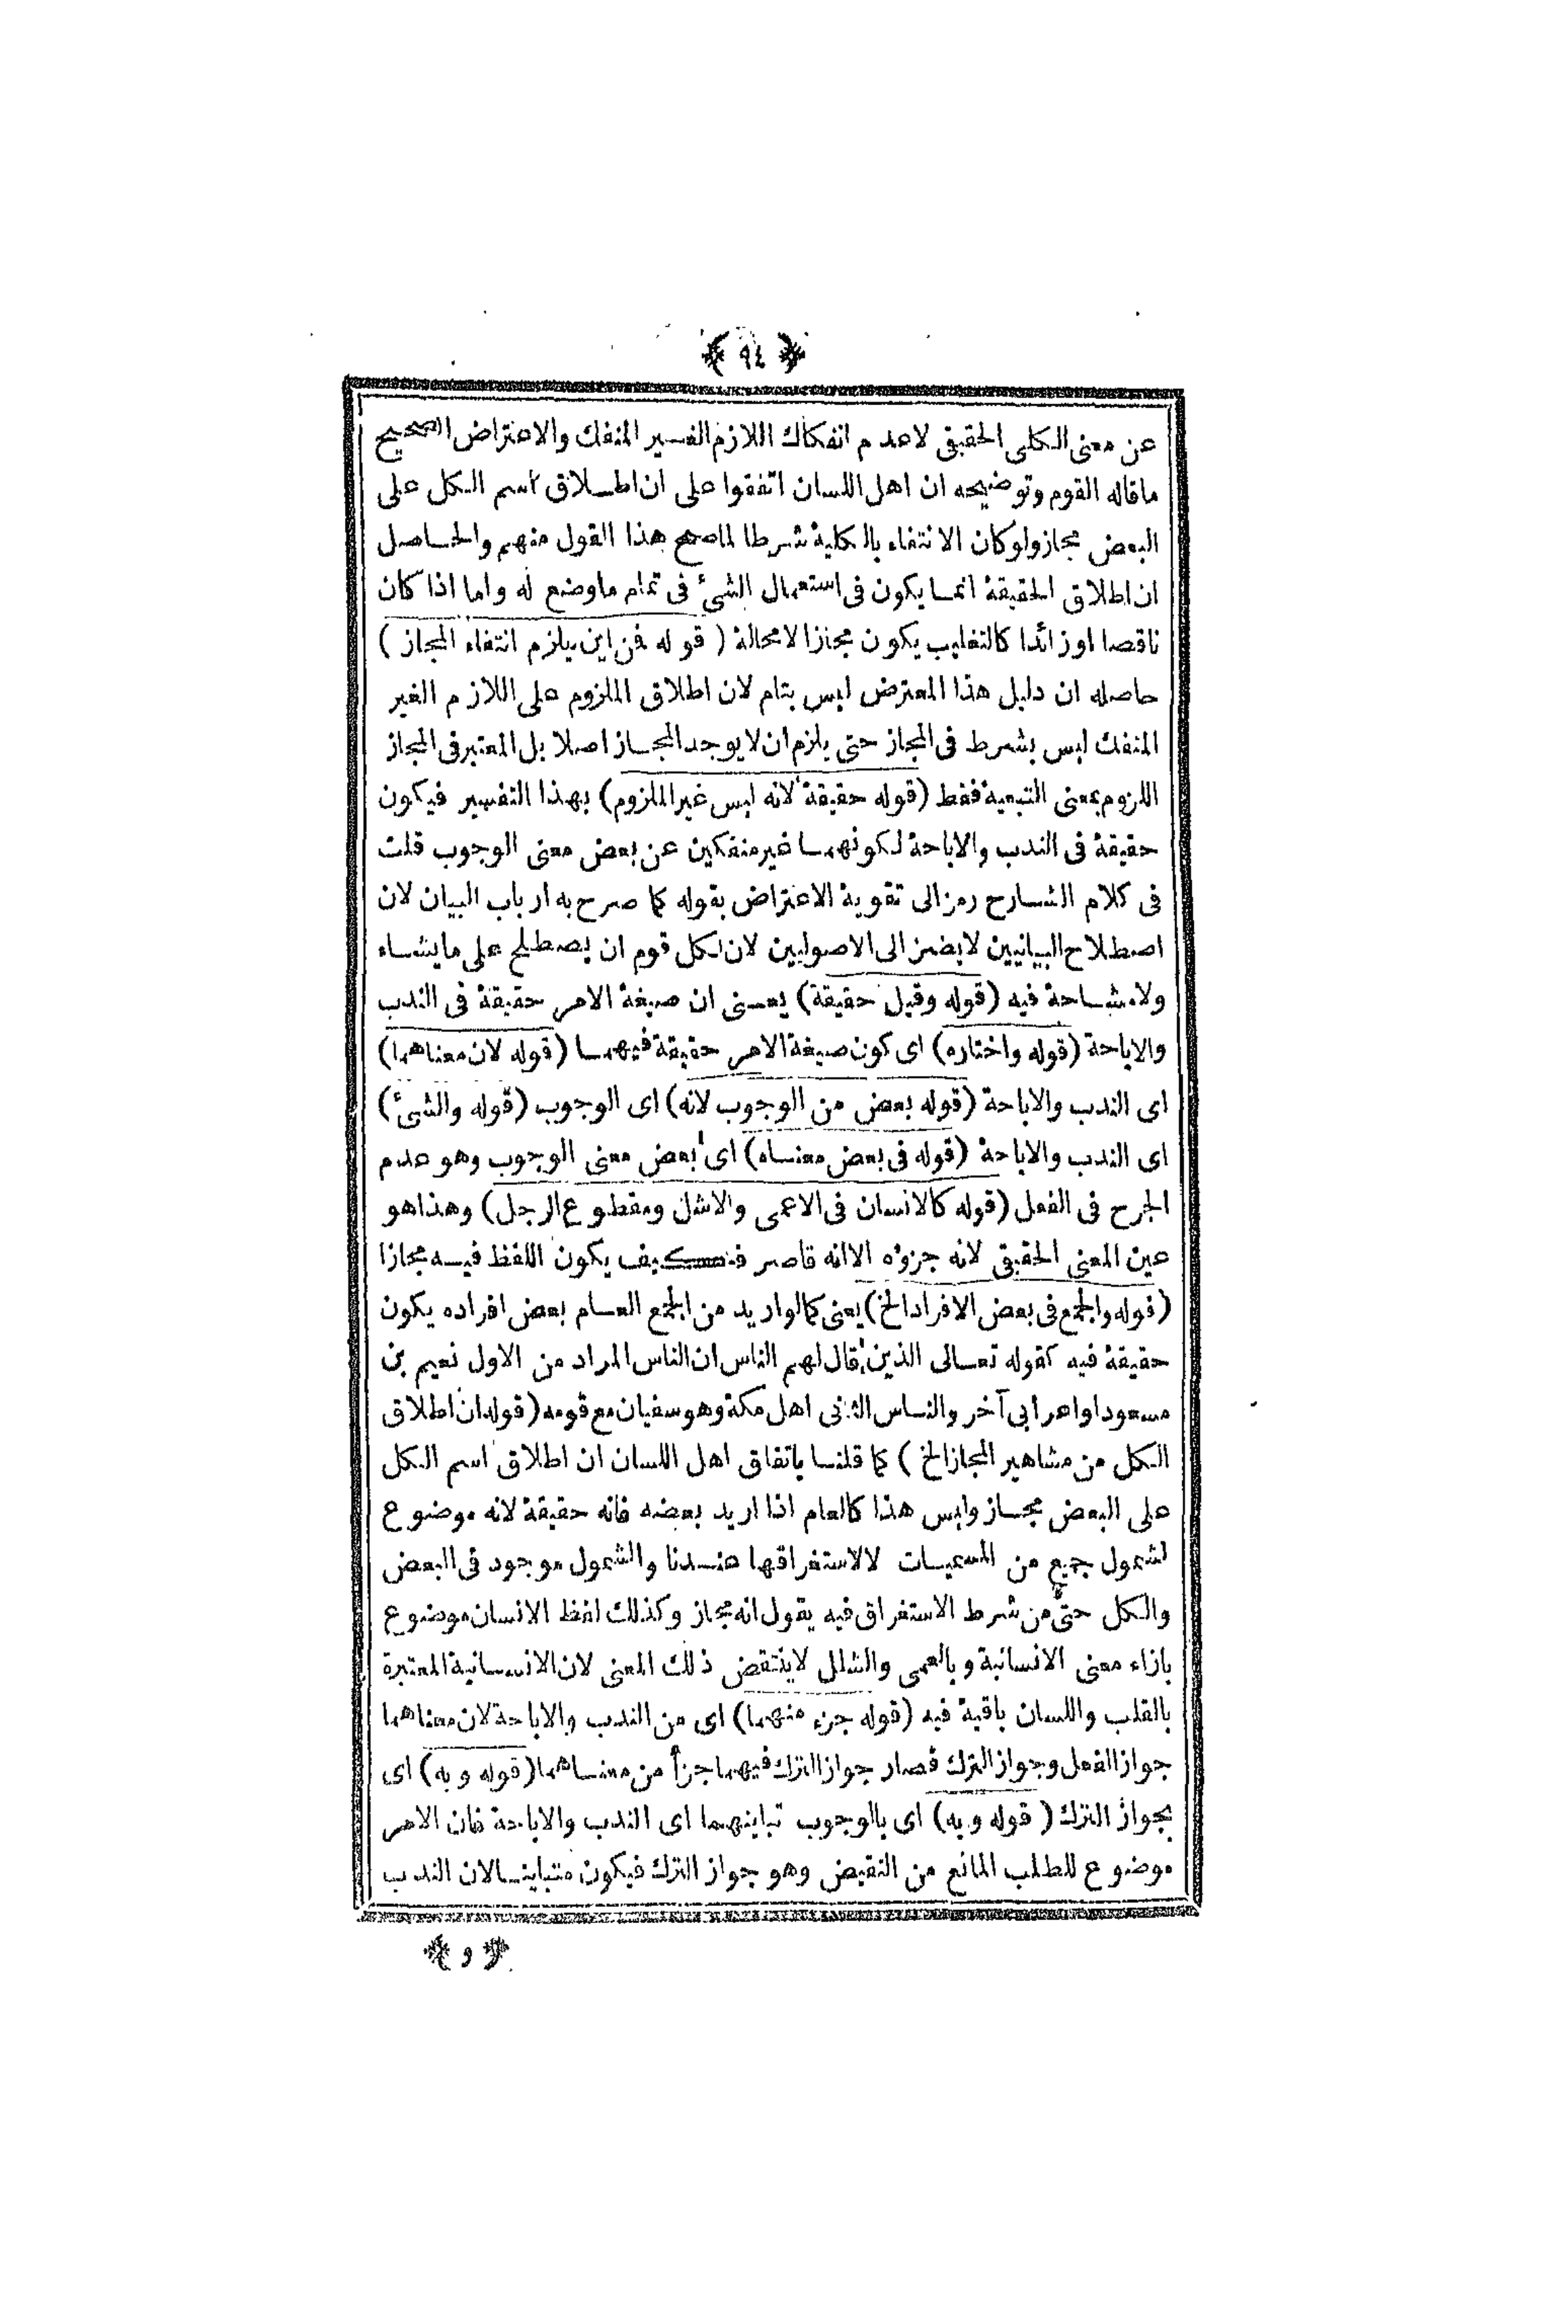 ﴿ ٩٤ ﴾
عن معنى الكلى الحقيقى لاعدم انفكاك اللازم الغسير المنفك والاعتراض الصحيح
ماقاله القوم وتوضيحه ان اهل اللسان اتفقوا على ان اطلاق اسم الكل على
البعض مجاز ولوكان الانتفاء بالكلية شرطا لماصح هذا القول منهم والحاصل
ان اطلاق الحقيقة انما يكون فى استعمال الشئ فى تمام ماوضع له واما اذا كان
ناقصا اوزائدا كالتغليب يكون مجازا لامحالة ( قوله فمن اين يلزم انتفاء المجاز )
حاصله ان دليل هذا المعترض ليس بتام لان اطلاق الملزوم على اللازم الغير
المنفك ليس بشرط فى المجاز حتى يلزم ان لايوجد المجاز اصلا بل المعتبر فى المجاز
اللزوم بمعنى التبعية فقط (قوله حقيقة لانه ليس غير الملزوم) بهذا التفسير فيكون
حقيقة فى الندب والاباحة لكونهما غير منفكين عن بعض معنى الوجوب قلت
فى كلام الشارح رمز الى تقوية الاعتراض بقوله كما صرح به ارباب البيان لان
اصطلاح البيانيين لايضر الى الاصوليين لان لكل قوم ان يصطلح على مايشاء
ولامشاحة فيه (قوله وقيل حقيقة) يعنى ان صيغة الامر حقيقة فى الندب
والاباحة (قوله واختاره) اى كون صيغة الامر حقيقة فيهما (قوله لان معناهما)
اى الندب والاباحة (قوله بعض من الوجوب لانه) اى الوجوب (قوله والشئ)
اى الندب والاباحة (قوله فى بعض معناه) اى بعض معنى الوجوب وهو عدم
الجرح فى الفعل (قوله كالانسان فى الاعمى والاشل ومقطوع الرجل) وهذا هو
عين المعنى الحقيقى لانه جزؤه الا انه قاصر فكيف يكون اللفظ فيه مجازا
(قوله والجمع فى بعض الافراد الخ) يعنى كما لو اريد من الجمع العام بعض افراده يكون
حقيقة فيه كقوله تعالى الذين قال لهم الناس ان الناس المراد من الاول نعيم بن
مسعود او اعرابى آخر والناس الثانى اهل مكة وهو سفيان مع قومه (قوله ان اطلاق
الكل من مشاهير المجاز الخ ) كما قلنا باتفاق اهل اللسان ان اطلاق اسم الكل
على البعض مجاز وليس هذا كالعام اذا اريد بعضه فانه حقيقة لانه موضوع
لشمول جميع من المسميات لالاستغراقها عندنا والشمول موجود فى البعض
والكل حتى من شرط الاستغراق فيه يقول انه مجاز وكذلك لفظ الانسان موضوع
بازاء معنى الانسانية وبالعمى والشلل لاينتقض ذلك المعنى لان الانسانية المعتبرة
بالقلب واللسان باقية فيه (قوله جزء منهما) اى من الندب والاباحة لان معناهما
جواز الفعل وجواز الترك فصار جواز الترك فيهما جزأ من معناهما (قوله وبه) اى
بجواز الترك ( قوله وبه) اى بالوجوب تباينهما اى الندب والاباحة فان الامر
موضوع للطلب المانع من النقيض وهو جواز الترك فيكون متباينا لان الندب
﴿ و ﴾